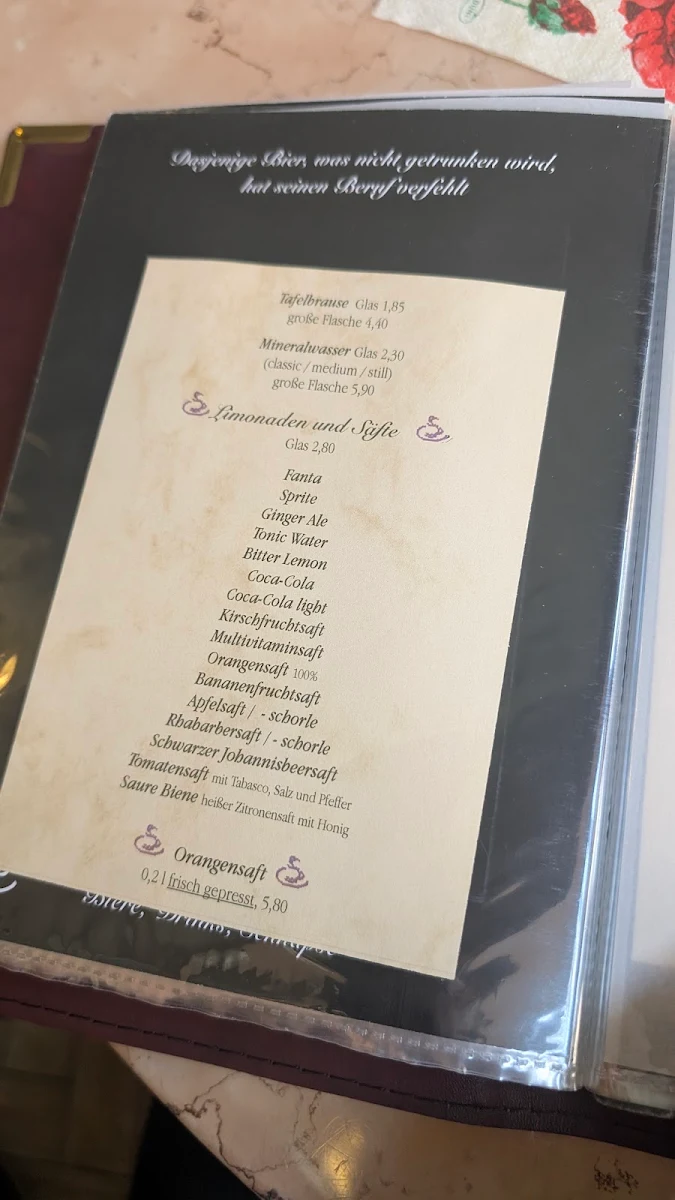 Dasjenige Bier, was nicht getrunken wird,
hat seinen Beruf verfehlt
Tafelbrause Glas 1,85
große Flasche 4,40
Mineralwasser Glas 2,30
(classic / medium / still)
große Flasche 5,90
Limonaden und Säfte
Glas 2,80
Fanta
Sprite
Ginger Ale
Tonic Water
Bitter Lemon
Coca-Cola
Coca-Cola light
Kirschfruchtsaft
Multivitaminsaft
Orangensaft 100%
Bananenfruchtsaft
Apfelsaft / - schorle
Rhabarbersaft / - schorle
Schwarzer Johannisbeersaft
Tomatensaft mit Tabasco, Salz und Pfeffer
Saure Biene heißer Zitronensaft mit Honig
Orangensaft
0,2 l frisch gepresst, 5,80
Biere, Drinks, Schnäpse